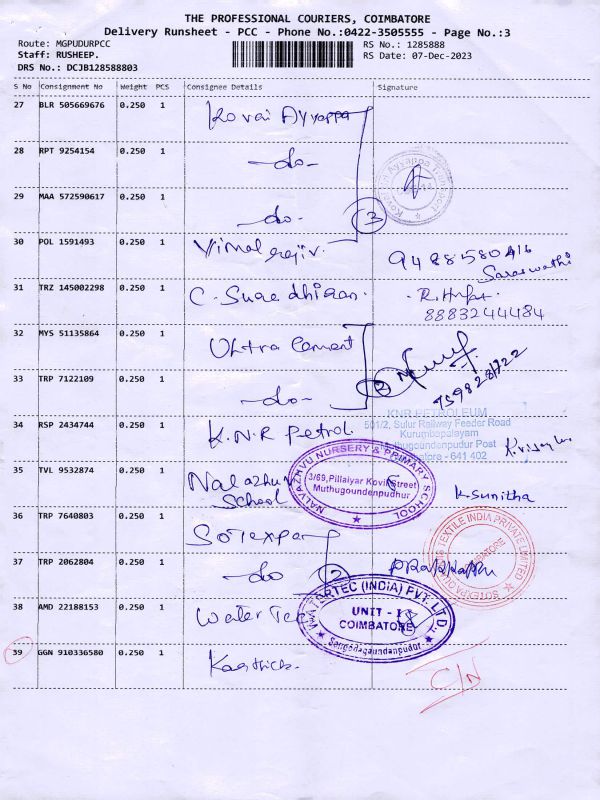 THE PROFESSIONAL COURIERS, COIMBATORE
Delivery Runsheet - PCC - Phone No.:0422-3505555 - Page No.:3
Route: MGPUDURPCC
RS No.: 1285888
Staff: RUSHEEP.
RS Date: 07-Dec-2023
DRS No.: DCJB128588803
S No Consignment No Weight PCS Consignee Details Signature
27 BLR 505669676 0.250 1 Kovai Ayyappa
28 RPT 9254154 0.250 1 -do-
29 MAA 572590617 0.250 1 -do- 3
30 POL 1591493 0.250 1 Vimal rajiv. 9488580416
Saraswathi
31 TRZ 145002298 0.250 1 C.
8883244484
32 MYS 51135864 0.250 1 Ultra Cement
33 TRP 7122109 0.250 1 -do- 2
34 RSP 2434744 0.250 1 K.N.R petrol.
KNR PETROLEUM
501/2, Sulur Railway Feeder Road
Kurumbapalayam
Muthugoundenpudur Post
Coimbatore - 641 402
35 TVL 9532874 0.250 1 Nalazhvu School K. Sunitha
NALVAZHVU NURSERY & PRIMARY SCHOOL
3/69, Pillaiyar Kovil Street
Muthugoundenpudhur
36 TRP 7640803 0.250 1 Sotexpa
TEXTILE INDIA PRIVATE LIMITED
COIMBATORE
37 TRP 2062804 0.250 1 -do 2
38 AMD 22188153 0.250 1 Water Tec
WATERTEC (INDIA) PVT. LTD.
UNIT - I
COIMBATORE
39 GGN 910336580 0.250 1 Kaarthick.
C/N